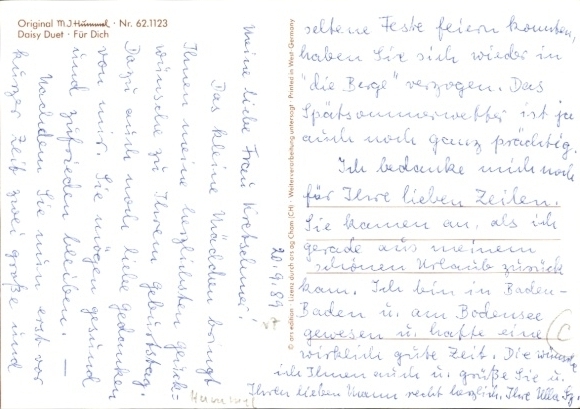 Original M.J. Hummel · Nr. 62.1123
Daisy Duet · Für Dich
20.9.89
Meine liebe Frau
Das kleine Mädchen bringt
Ihnen meine herzlichsten Glück-
wünsche zu Ihrem Geburtstag.
Dazu auch noch liebe Gedanken
von mir. Sie mögen gesund
und zufrieden bleiben. —
Nachdem Sie nun erst vor
kurzer Zeit zwei große und
Hummel
© ars edition · Lizenz durch ars ag Cham (CH) · Weiterverarbeitung untersagt · Printed in West-Germany
seltene Feste feiern konnten,
haben Sie sich wieder in
"die Berge" verzogen. Das
Spätsommerwetter ist ja
auch noch ganz prächtig.
Ich bedanke mich noch
für Ihre lieben Zeilen.
Sie kamen an, als ich
gerade aus meinem
schönen Urlaub zurück
kam. Ich bin in Baden-
Baden u. am Bodensee
gewesen u. hatte eine
wirklich gute Zeit. Die wünsche
ich Ihnen auch u. grüße Sie u.
Ihren lieben Mann recht herzlich. Ihre Ulla